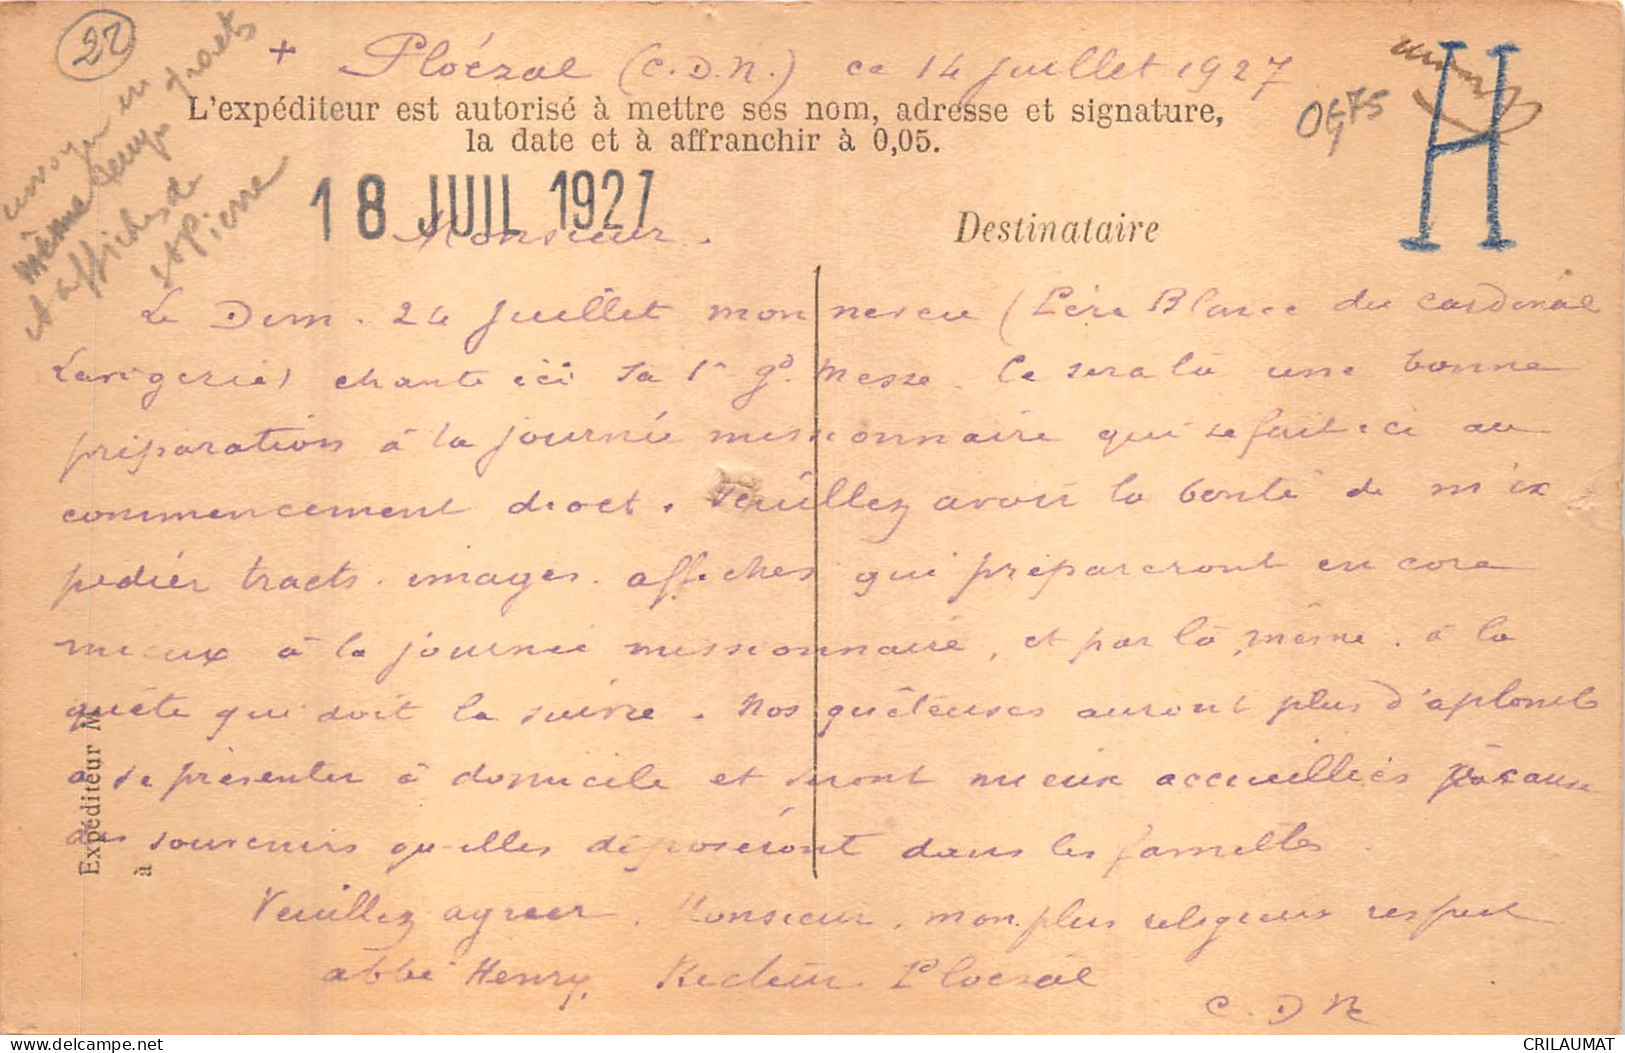 22
envoyer en
même temps tracts
et affiches de
St Pierre
+ Ploézal (C.D.N.) ce 14 juillet 1927
L'expéditeur est autorisé à mettre ses nom, adresse et signature,
la date et à affranchir à 0,05.
0475
H
18 JUIL 1927
Monsieur.
Destinataire
Le Dim. 24 Juillet mon neveu (Père Blanc du cardinal
Lavigerie) chante ici sa 1e gde Messe. Ce sera là une bonne
préparation à la journée missionnaire qui se fait ici au
commencement d'oct. Veuillez avoir la bonté de m'ex
pédier tracts. images. affiches qui prépareront encore
mieux à la journée missionnaire, et par là même. à la
quête qui doit la suivre. Nos quêteuses auront plus d'aplomb
à se présenter à domicile et seront mieux accueillies à cause
des souvenirs qu'elles déposeront dans les familles.
Veuillez agréer, Monsieur, mon plus religieux respect
abbé Henry. Recteur Ploezal
C. D N
Expéditeur M
à
delcampe.net
CRILAUMAT